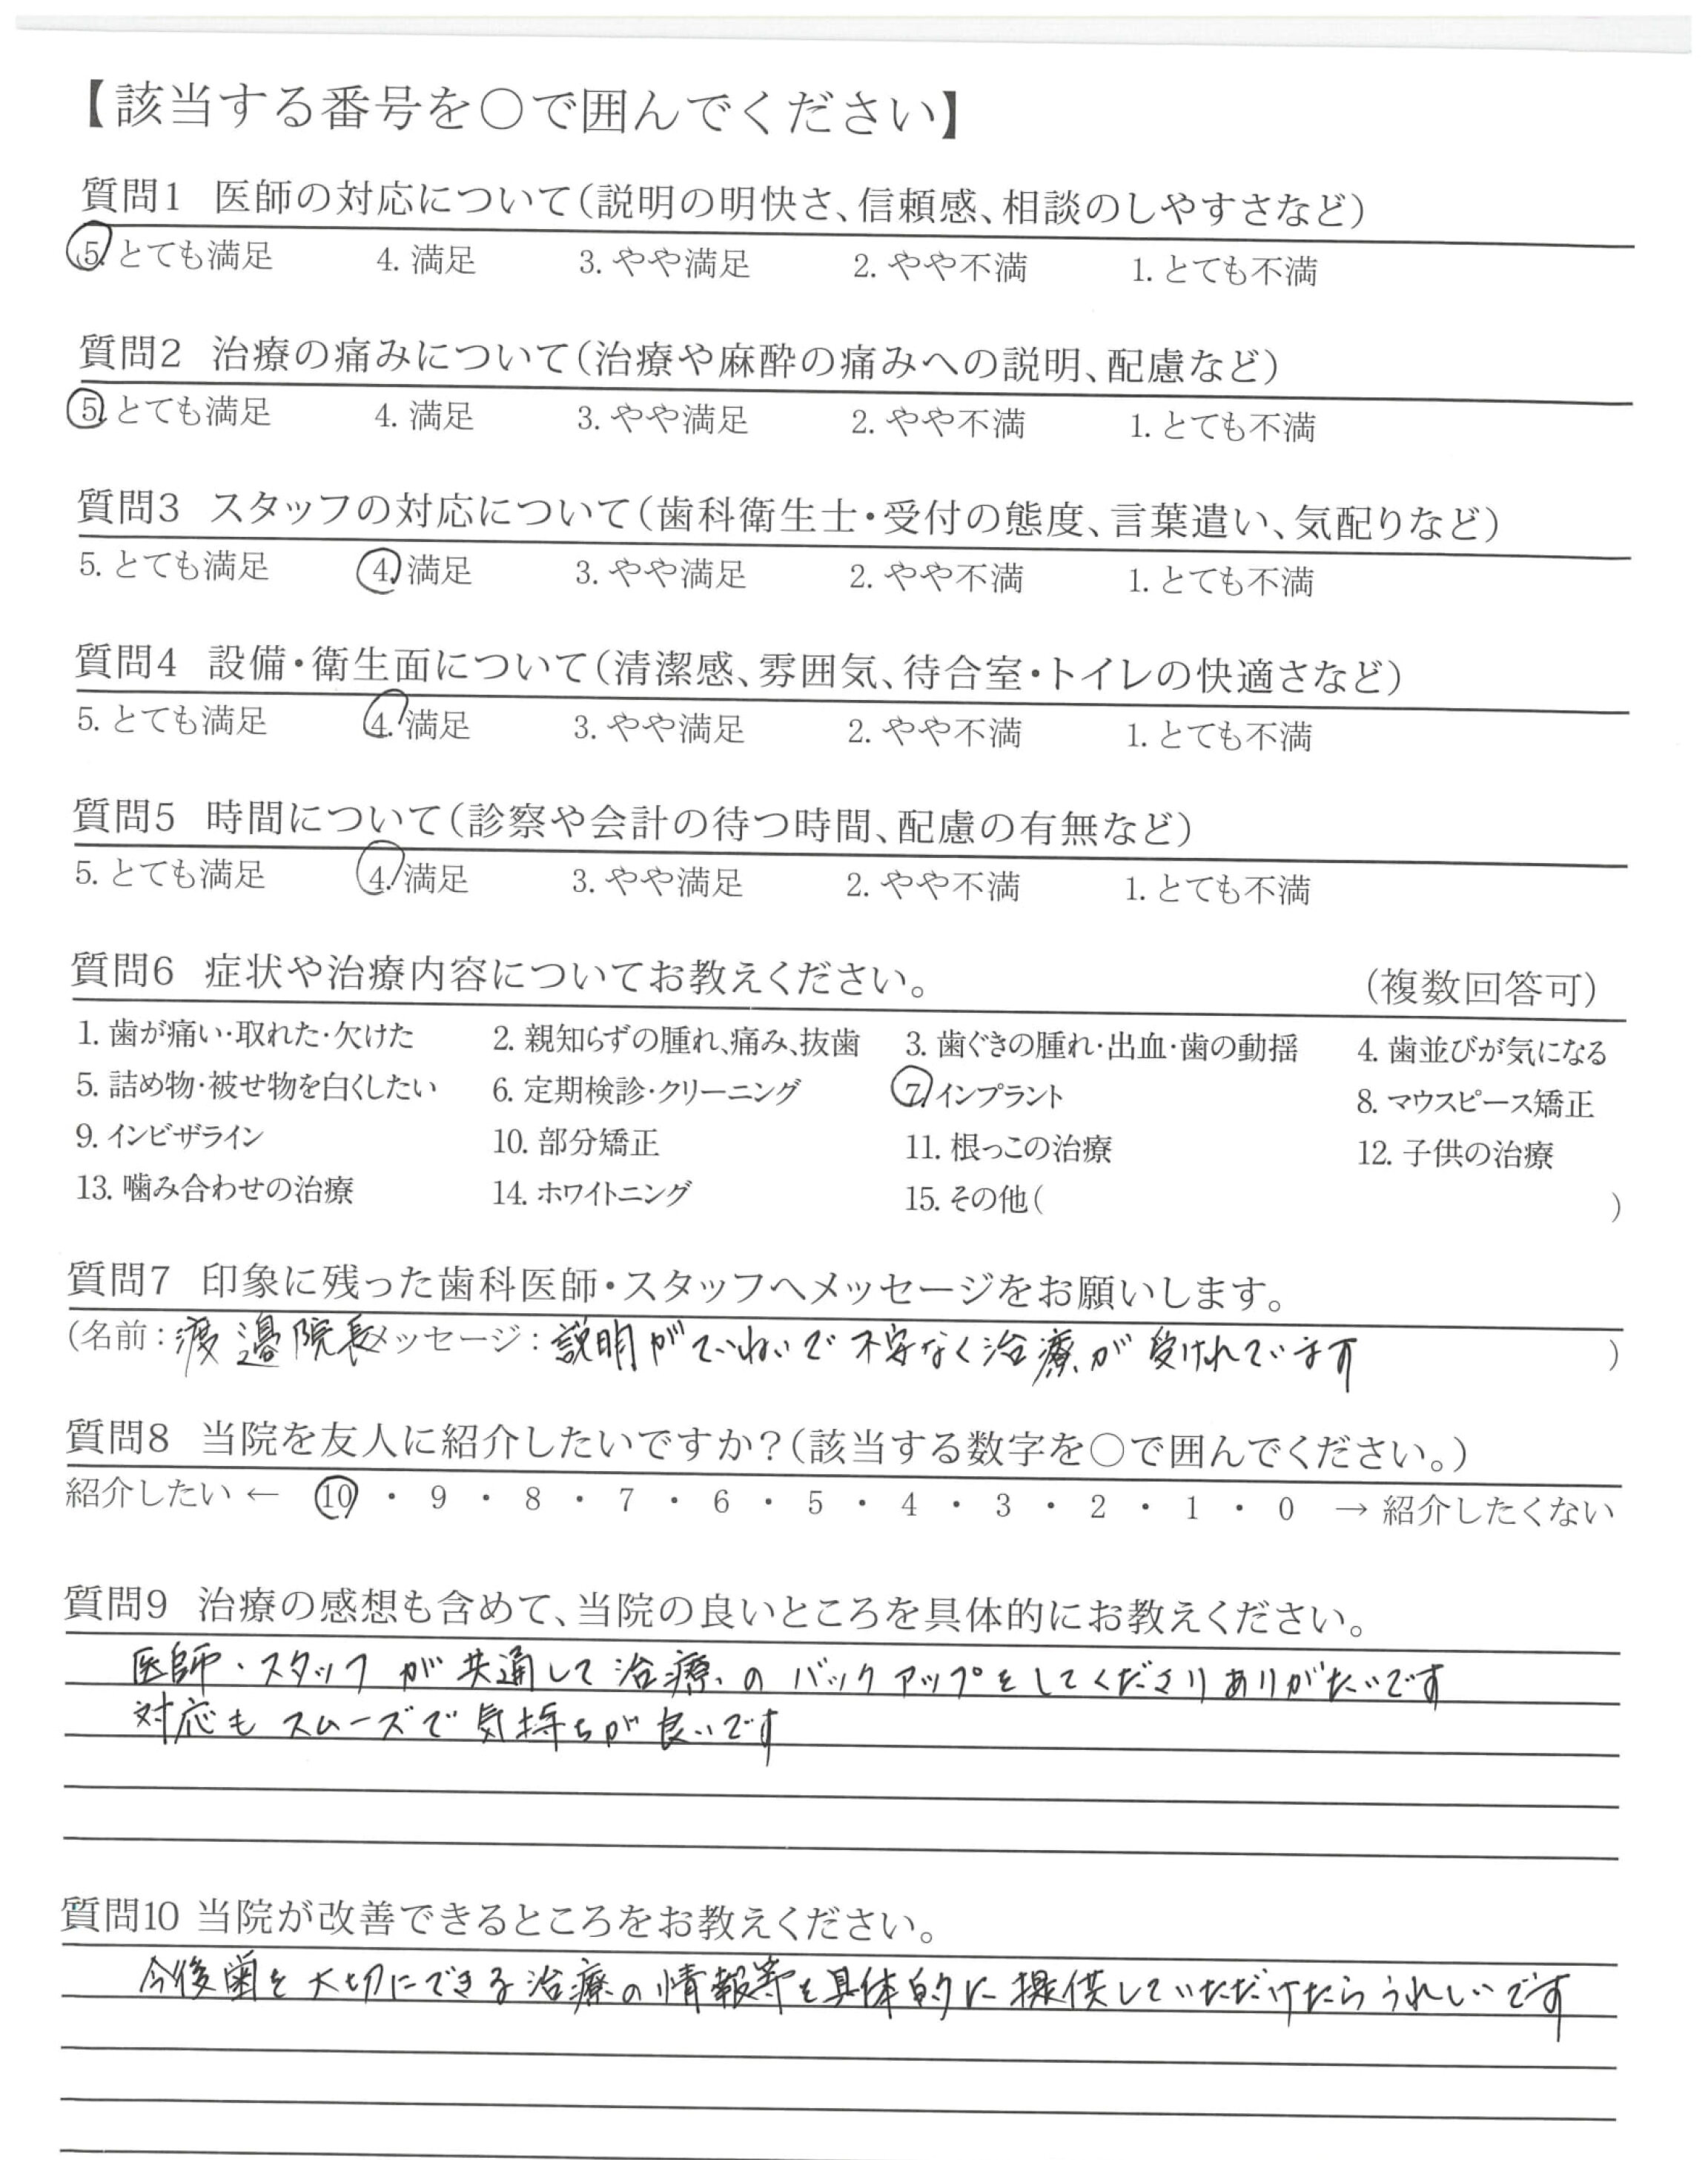 【該当する番号を○で囲んでください】
質問1 医師の対応について(説明の明快さ、信頼感、相談のしやすさなど)
5. とても満足 4. 満足 3. やや満足 2. やや不満 1. とても不満
質問2 治療の痛みについて(治療や麻酔の痛みへの説明、配慮など)
5. とても満足 4. 満足 3. やや満足 2. やや不満 1. とても不満
質問3 スタッフの対応について(歯科衛生士・受付の態度、言葉遣い、気配りなど)
5. とても満足 4. 満足 3. やや満足 2. やや不満 1. とても不満
質問4 設備・衛生面について(清潔感、雰囲気、待合室・トイレの快適さなど)
5. とても満足 4. 満足 3. やや満足 2. やや不満 1. とても不満
質問5 時間について(診察や会計の待つ時間、配慮の有無など)
5. とても満足 4. 満足 3. やや満足 2. やや不満 1. とても不満
質問6 症状や治療内容についてお教えください。 (複数回答可)
1. 歯が痛い・取れた・欠けた 2. 親知らずの腫れ、痛み、抜歯 3. 歯ぐきの腫れ・出血・歯の動揺 4. 歯並びが気になる
5. 詰め物・被せ物を白くしたい 6. 定期検診・クリーニング 7. インプラント 8. マウスピース矯正
9. インビザライン 10. 部分矯正 11. 根っこの治療 12. 子供の治療
13. 噛み合わせの治療 14. ホワイトニング 15. その他( )
質問7 印象に残った歯科医師・スタッフへメッセージをお願いします。
(名前:渡邉院長メッセージ:説明がていねいで不安なく治療が受けれています )
質問8 当院を友人に紹介したいですか?(該当する数字を○で囲んでください。)
紹介したい ← 10 ・ 9 ・ 8 ・ 7 ・ 6 ・ 5 ・ 4 ・ 3 ・ 2 ・ 1 ・ 0 → 紹介したくない
質問9 治療の感想も含めて、当院の良いところを具体的にお教えください。
医師・スタッフが共通して治療のバックアップをしてくださりありがたいです
対応もスムーズで気持ちが良いです
質問10 当院が改善できるところをお教えください。
今後歯を大切にできる治療の情報等を具体的に提供していただけたらうれしいです